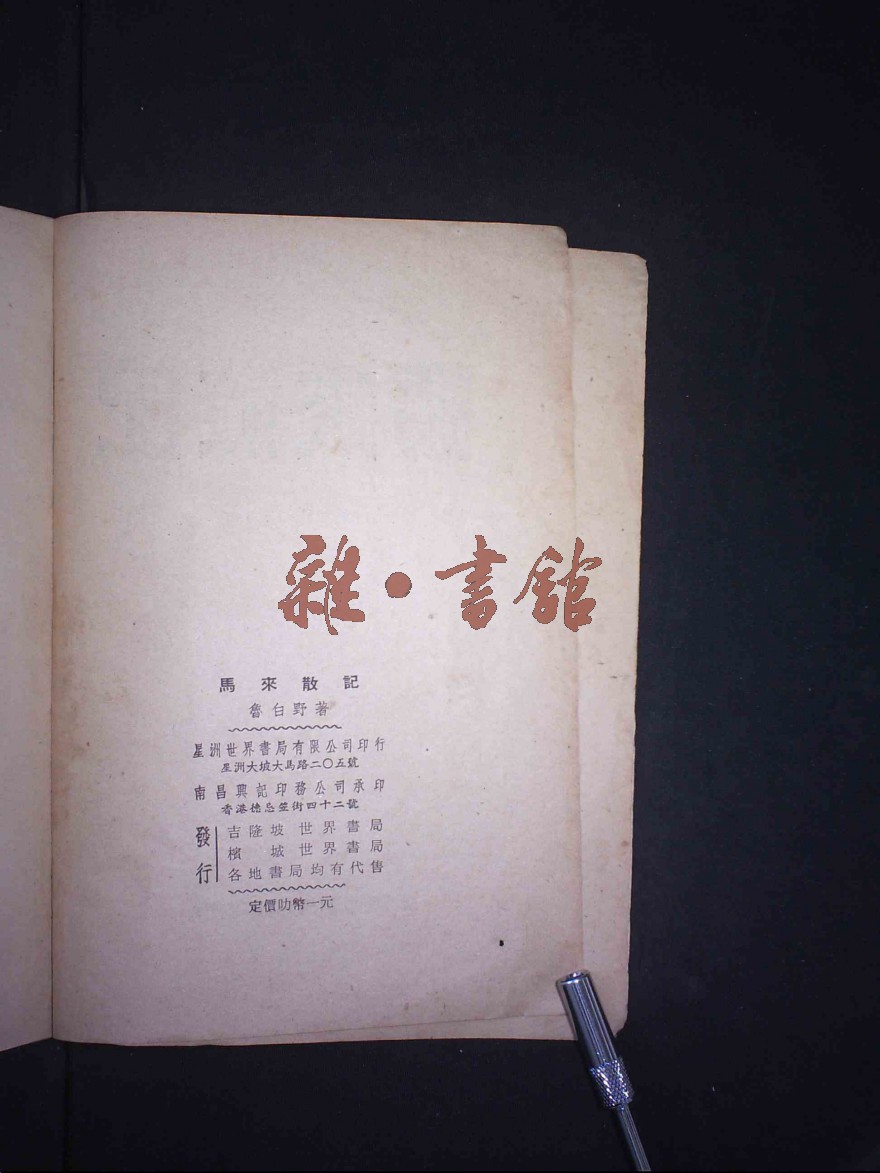 雜·書館
馬來散記
魯白野著
星洲世界書局有限公司印行
星洲大坡大馬路二〇五號
南昌興記印務公司承印
香港德忌笠街四十二號
發行
吉隆坡世界書局
檳城世界書局
各地書局均有代售
定價叻幣一元